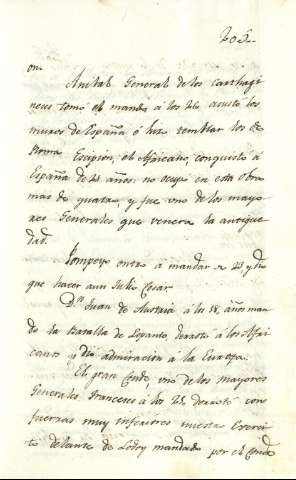 203.
on.
Anibal General de los carthagi
neses tomó el mando á los 26. asusto los
muros de España é hizo temblar los de
Roma. Escipion, el Africano, conquistó á
España de 24. años: no ocupó en esta obra
mas de quatro, y fue uno de los mayo
res Generales que venera la antigue
dad.
Pompeyo entro á mandar a 23 y dio
que hacer aun Julio Cesar
Dn Juan de Austria á los 18. años man
do la Batalla de Lepanto, derrotó á los Afri
canos y dio admiracion á la Europa.
El gran Conde, uno de los mayores
Generales Franceses á los 22. derrotó con
fuerzas muy inferiores nuestro Exerci
to delante de mandado por el Conde